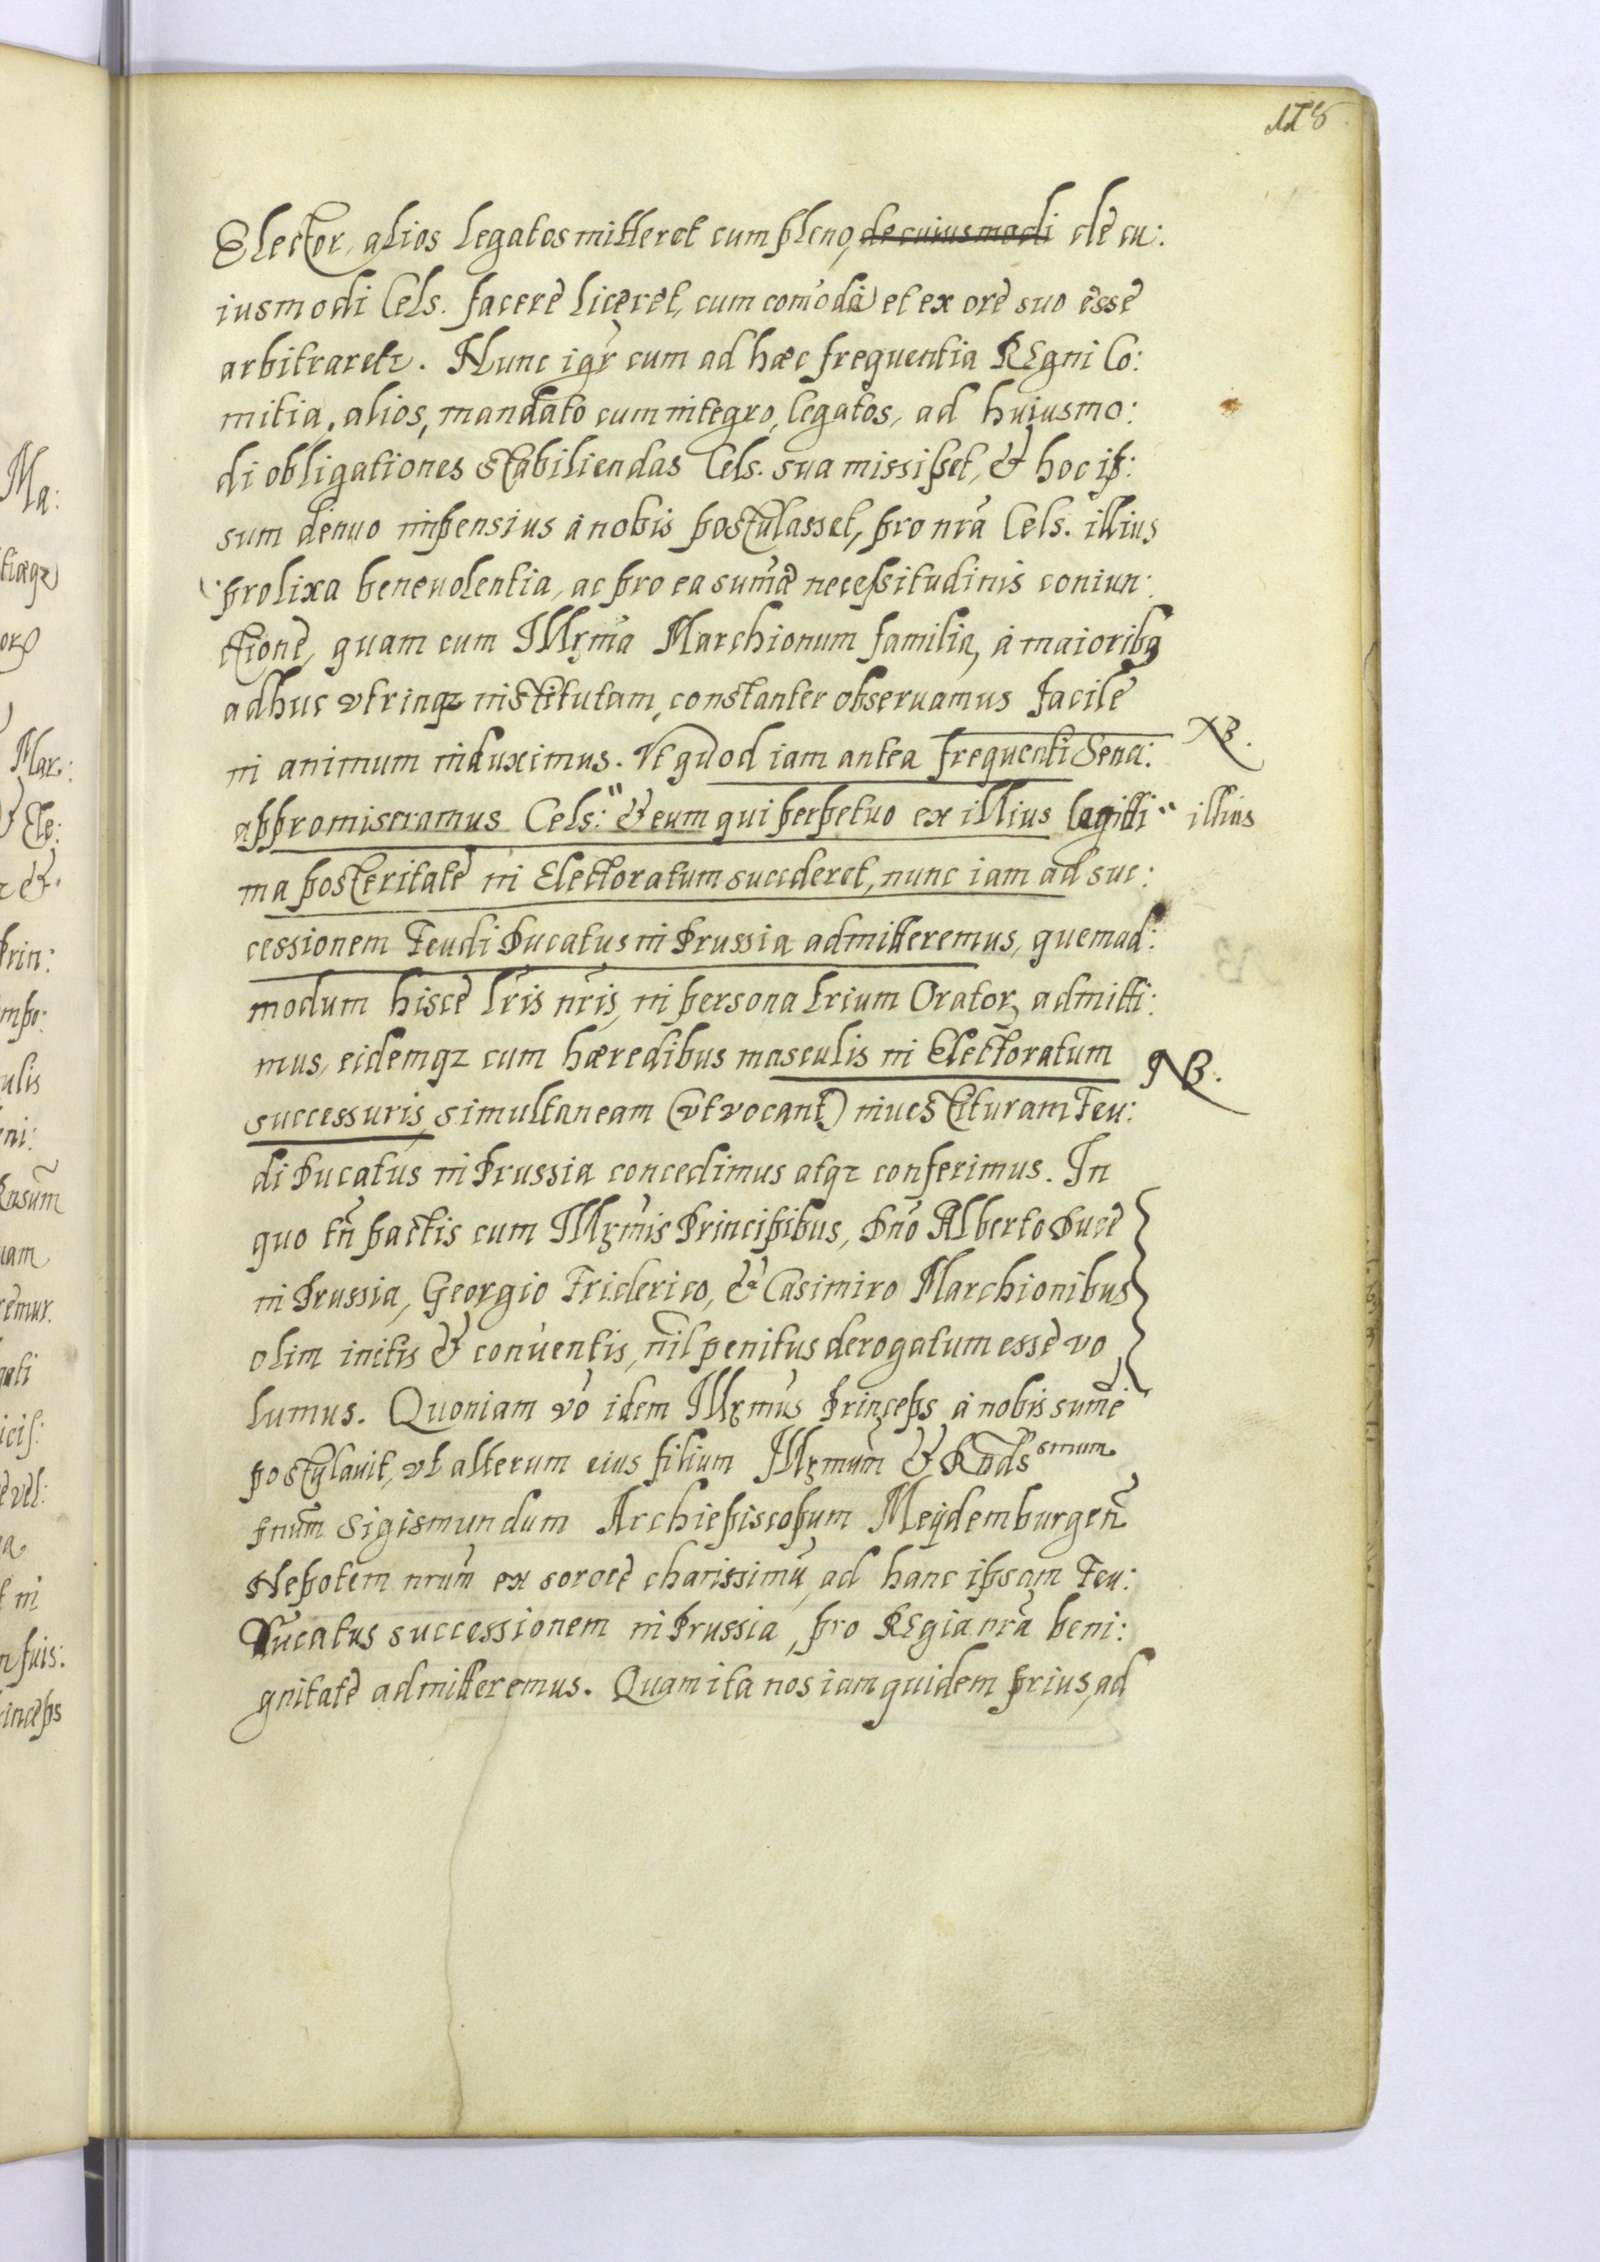 118
Elector, alios legatos mitteret cum pleno, de cuiusmodi de cu:
iusmodi Cels. facere liceret, cum com̃oda et ex ore suo esse
arbitraretr. Nunc igr̃ cum ad hæc frequentia REgni Co:
mitia, alios, mandato cum integro, legatos, ad huiusmo:
di obligationes stabiliendas Cels. sua mississet, & hoc ip:
sum denuo impensius a nobis postulasset, pro nr̃a Cels. illius
prolixa beneuolentia, ac pro ea sum̃a necessitudinis coniun:
ctione, quam cum Illr̃ma Marchionum familia, a maioribq
adhuc vtrinqz institutam, constanter obseruamus facile
in animum induximus. Vt quod iam antea frequenti Sena: NB.
appromiseramus Cels: " & eum qui perpetuo ex illius legitti " illius
ma posteritate in Electoratum succderet, nunc iam ad suc:
cessionem Feudi Ducatus in Prussia admitteremus, quemad:
modum hisce lr̃is nr̃is, in persona trium Orator, admitti:
mus, eidemqz cum hæredibus masculis in Electoratum NB.
successuris, simultaneam (vt vocant) inuestituram Feu:
di Ducatus in Prussia concedimus atqz conferimus. In
quo tñ pactis cum Illr̃mis Principibus, Dño Alberto Duce
in Prussia, Georgio Friderico, & Casimiro Marchionibus
olim initis & conuentis, nil penitus derogatum esse vo
lumus. Quoniam vo idem Illr̃mus Princeps a nobis sum̃e
postulauit, vt alterum eius filium Illr̃mum & Rnds smum
Dnũm Sigismundum Archiepiscopum Meydemburgeñ
Nepotem nrũm ex sorore charissimũ, ad hanc ipsam Feu:
Ducatus successionem in Prussia, pro REgia nr̃a beni:
gnitate admitteremus. Quam ita nos iam quidem prius, ad